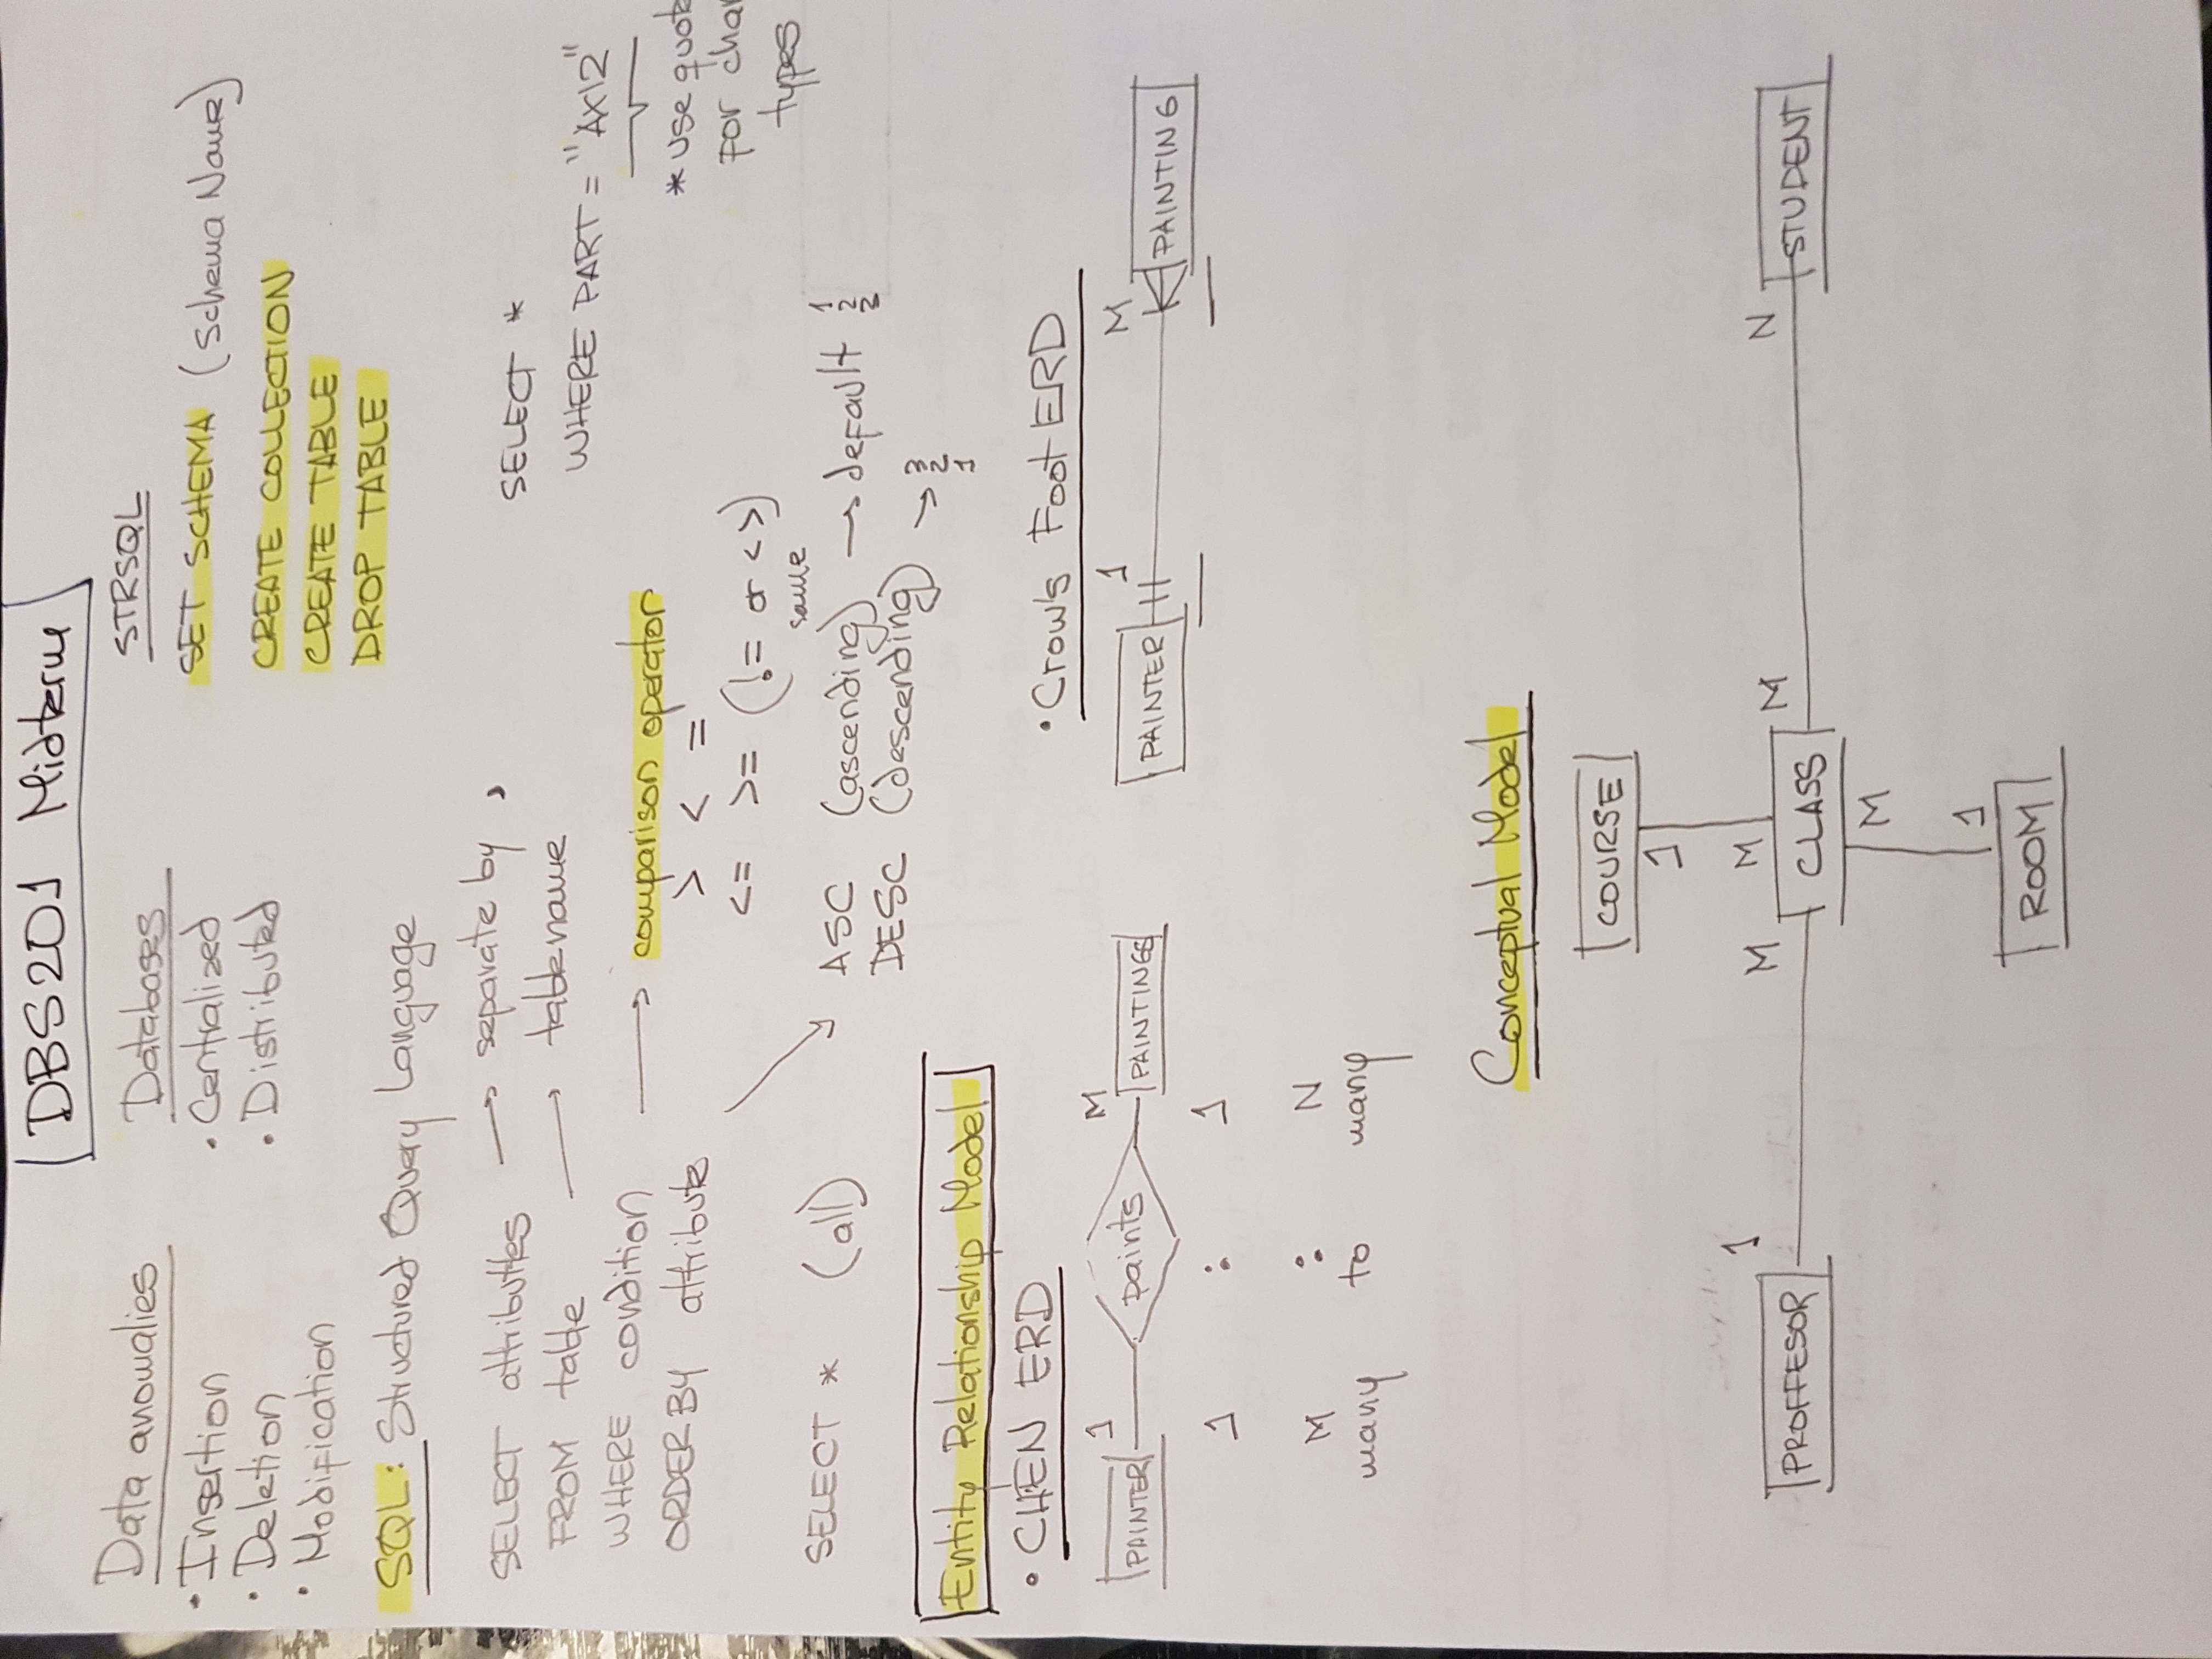 DBS201 Midterm
Data anomalies
• Insertion
• Deletion
• Modification
Databases
• Centralized
• Distributed
STRSQL
SET SCHEMA (Schema Name)
CREATE COLLECTION
CREATE TABLE
DROP TABLE
SQL: Structured Query Language
SELECT attributtes → separate by ,
FROM table → tablename
WHERE condition → comparison operator
> < =
<= >= (!= or <>)
same
ORDER BY attribute
ASC (ascending) → default 1
2
2
DESC (descending) → 3
2
1
SELECT * (all)
SELECT *
WHERE PART = "AX12"
* use quot
for char
types
Entity Relationship Model
• CHEN ERD
1 M
PAINTER paints PAINTINGS
1 : 1
M : N
many to many
• Crow's Foot ERD
1 M
PAINTER PAINTING
Conceptual Model
COURSE
1
M
PROFFESOR 1 M CLASS M N STUDENT
M
1
ROOM